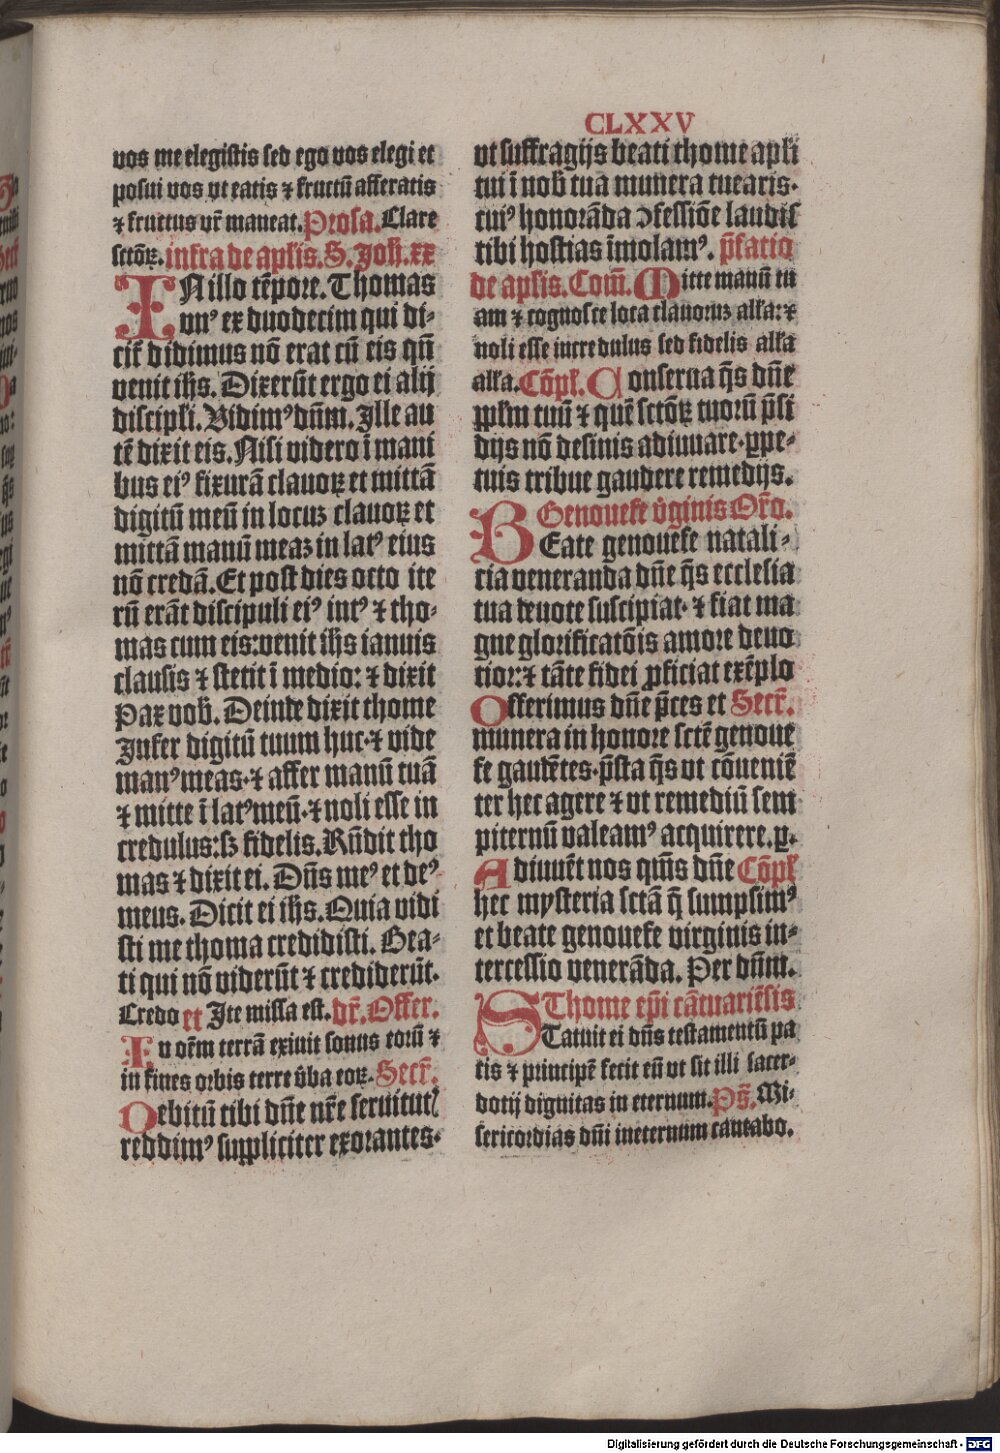 CLXXV
vos me elegistis sed ego vos elegi et
posui vos vt eatis ⁊ fructū afferatis
⁊ fructus vr̄ maneat. Prosa. Clare
sctōꝝ. infra de apl̄is. S. Joh̄. xx
INillo tēpore. Thomas
vnꝰ ex duodecim qui di-
cit̄ didimus nō erat cū eis qn̄
venit ihs. Dixerūt ergo ei alij
discipl̄i. Vidimꝰ dn̄m. Ille au
tē dixit eis. Nisi videro ī mani
bus eiꝰ fixurā clauoꝝ et mittā
digitū meū in locuꝫ clauoꝝ et
mittā manū meaꝫ in latꝰ eius
nō credā. Et post dies octo ite
rū erāt discipuli eiꝰ intꝰ ⁊ tho-
mas cum eis: venit ihs ianuis
clausis ⁊ stetit ī medio: ⁊ dixit
Pax vob̄. Deinde dixit thome
Infer digitū tuum huc. ⁊ vide
manꝰ meas. ⁊ affer manū tuā
⁊ mitte ī latꝰ meū. ⁊ noli esse in
credulus: sꝫ fidelis. Rn̄dit tho
mas ⁊ dixit ei. Dn̄s meꝰ et deꝰ
meus. Dicit ei ihs. Quia vidi
sti me thoma credidisti. Bea-
ti qui nō viderūt ⁊ crediderūt.
Credo et Ite missa est. dr̄. Offer.
In oēm terrā exiuit sonus eorū ⁊
in fines orbis terre v̄ba eoꝝ. Secr̄.
Debitū tibi dn̄e nr̄e seruitutꝭ
reddimꝰ suppliciter exorantes.
vt suffragijs beati thome apl̄i
tui ī nob̄ tua munera tuearis.
cuiꝰ honorāda ↄfessiōe laudis
tibi hostias īmolamꝰ. p̄fatio
de apl̄is. Com̄. Mitte manū tu
am ⁊ cognosce loca clauoruꝫ all̄a: ⁊
noli esse incredulus sed fidelis all̄a
all̄a. Cōpl̄. Conserua q̄s dn̄e
ppl̄m tuū ⁊ quē sctōꝝ tuorū p̄si
dijs nō desinis adiuuare. ꝑpe-
tuis tribue gaudere remedijs.
Genouefe v̄ginis Or̄o.
BEate genouefe natali-
cia veneranda dn̄e q̄s ecclesia
tua deuote suscipiat. ⁊ fiat ma
gne glorificatōis amore deuo
tior: ⁊ tāte fidei ꝓficiat exēplo
Offerimus dn̄e p̄ces et Secr̄.
munera in honore sctē genoue
fe gaudētes. p̄sta q̄s vt cōueniē
ter hec agere ⁊ vt remediū sem
piternū valeamꝰ acquirere. ꝑ.
Adiuuēt nos qm̄s dn̄e Cōpl̄
hec mysteria sctā q̄ sumpsimꝰ
et beate genouefe virginis in-
tercessio venerāda. Per dn̄m.
Thome ep̄i cātuariēsis
STatuit ei dn̄s testamentū pa
cis ⁊ principē fecit eū vt sit illi sacer-
dotij dignitas in eternum. Ps̄. Mi-
sericordias dn̄i ineternum cantabo.
Digitalisierung gefördert durch die Deutsche Forschungsgemeinschaft - DFG